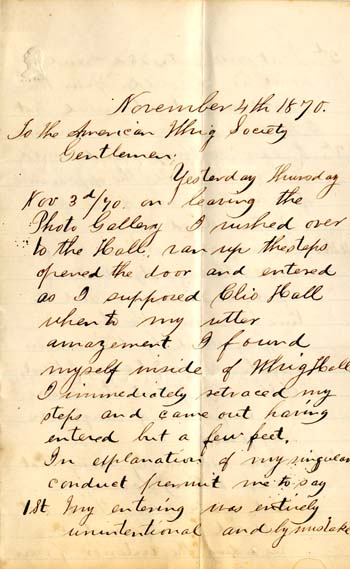 November 4th 1870.
To the American Whig Society
Gentlemen.
Yesterday Thursday
Nov 3d/70. on leaving the
Photo Gallery I rushed over
to the Hall, ran up the steps
opened the door and entered
as I supposed Clio Hall
when to my utter
amazement I found
myself inside of Whig Hall
I immediately retraced my
steps and came out having
entered but a few feet.
In explanation of my singular
conduct permit me to say
1st. My entering was entirely
unintentional and by mistake